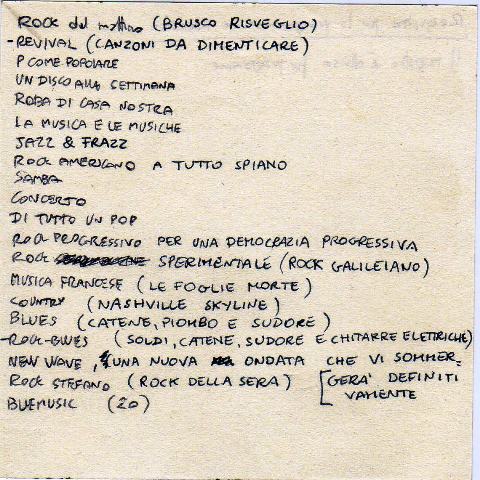 ROCK del mattino (BRUSCO RISVEGLIO)
-REVIVAL (CANZONI DA DIMENTICARE)
P COME POPOLARE
UN DISCO ALLA SETTIMANA
ROBA DI CASA NOSTRA
LA MUSICA E LE MUSICHE
JAZZ & FRAZZ
ROCK AMERICANO A TUTTO SPIANO
SAMBA
CONCERTO
DI TUTTO UN POP
ROCK PROGRESSIVO PER UNA DEMOCRAZIA PROGRESSIVA
ROCK SPERIMENTALE (ROCK GALILEIANO)
MUSICA FRANCESE (LE FOGLIE MORTE)
COUNTRY (NASHVILLE SKYLINE)
BLUES (CATENE, PIOMBO E SUDORE)
-ROCK-BLUES (SOLDI, CATENE, SUDORE E CHITARRE ELETTRICHE)
NEW WAVE, (UNA NUOVA ONDATA CHE VI SOMMER=
ROCK STEFANO (ROCK DELLA SERA) [GERA' DEFINITI
VAMENTE
BLUEMUSIC (20)